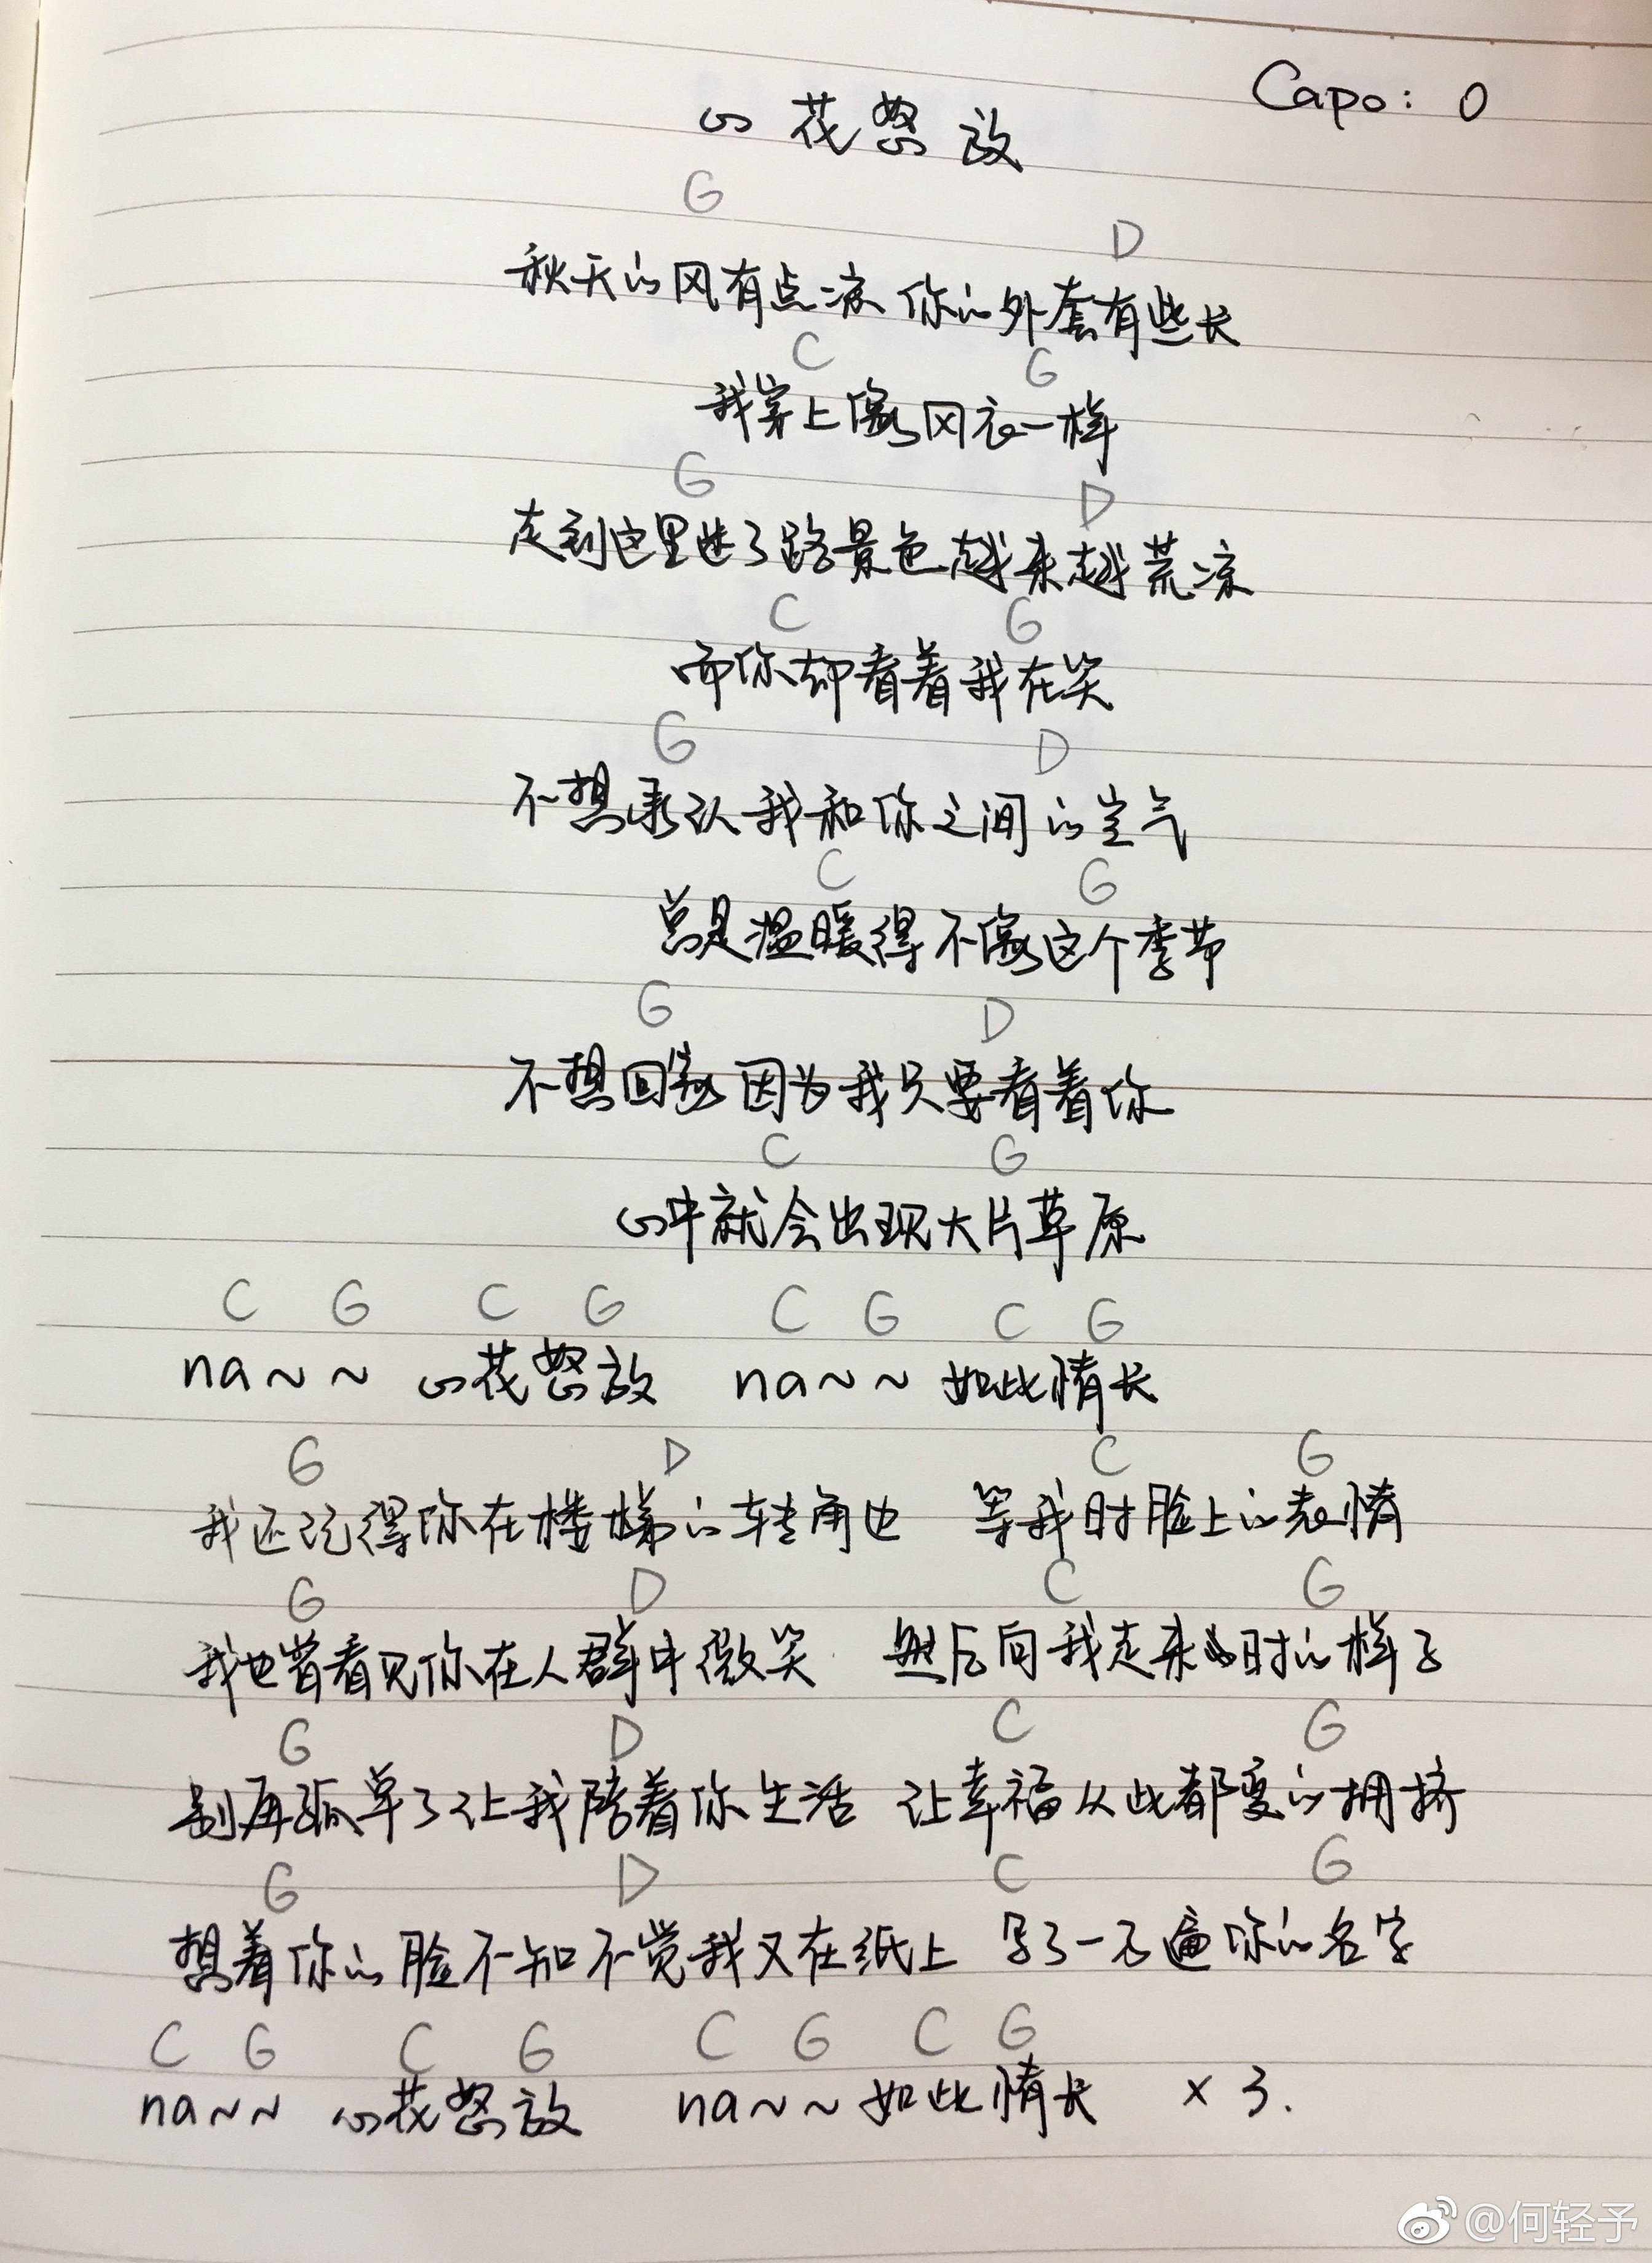 Capo: 0
心花怒放
G
D
秋天的风有点凉 你的外套有些长
C G
我穿上像风衣一样
G D
走到这里迷了路景色越来越荒凉
C G
而你却看着我在笑
G D
不想承认我和你之间的空气
C G
总是温暖得不像这个季节
G D
不想回家因为我只要看着你
C G
心中就会出现大片草原
C G C G C G C G
na~~ 心花怒放 na~~ 如此情长
G D C G
我还记得你在楼梯的转角边 等我时脸上的表情
G D C G
我也曾看见你在人群中微笑 然后向我走来时的样子
G D C G
别再孤单了让我陪着你生活 让幸福从此都变的拥挤
G D C G
想着你的脸不知不觉我又在纸上 写了一百遍你的名字
C G C G C G C G
na~~ 心花怒放 na~~如此情长 ×3.
@何轻予